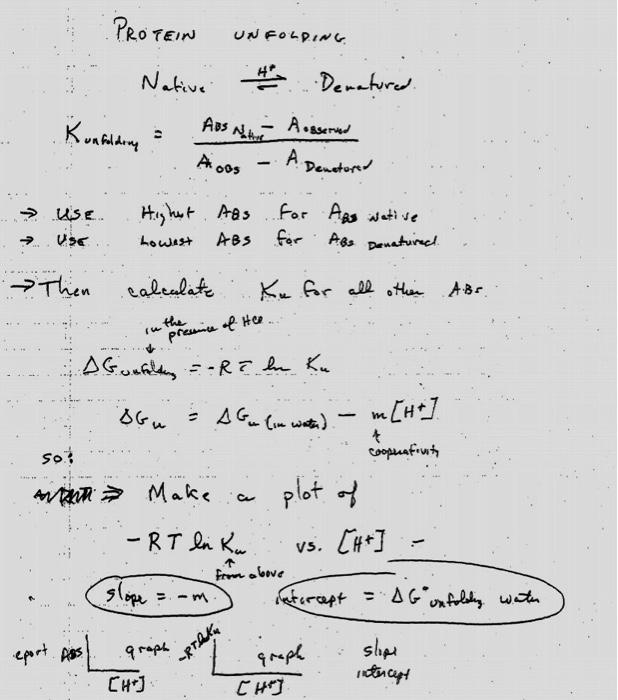 PROTEIN UNFOLDING
Native H+ ⇌ Denatured
K unfolding = ABS Native - A OBSERVED
A OBS - A Denatured
→ USE Highest ABS For ABS Native
→ USE Lowest ABS for ABS Denatured
→ Then calculate Ku for all other ABS
in the
presence of HCl
↓
ΔG unfolding = -RT ln Ku
ΔGu = ΔGu (in water) - m[H+]
↑
cooperativity
so:
⇒ Make a plot of
-RT ln Ku vs. [H+] -
↑
from above
slope = -m intercept = ΔG° unfolding water
eport ABS graph -RT ln Ku graph slope
[H+] [H+] intercept